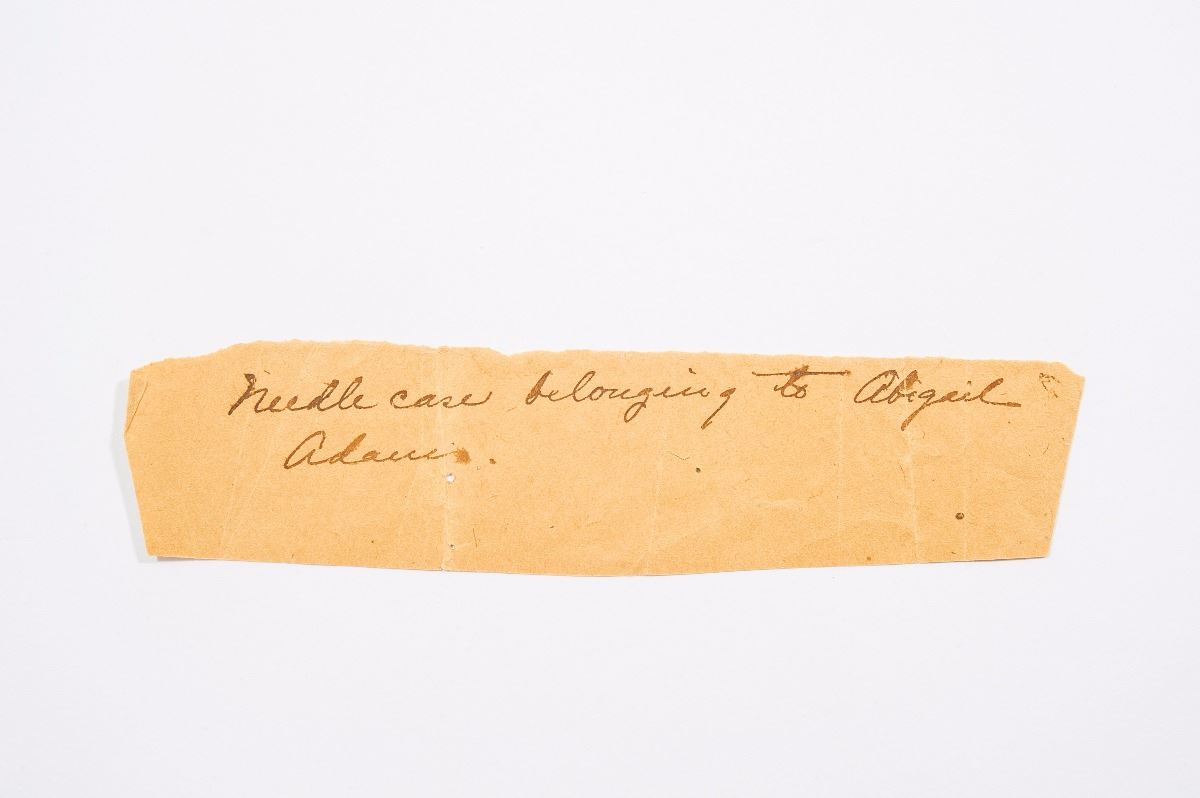 Needle case belonging to Abigail
Adams.